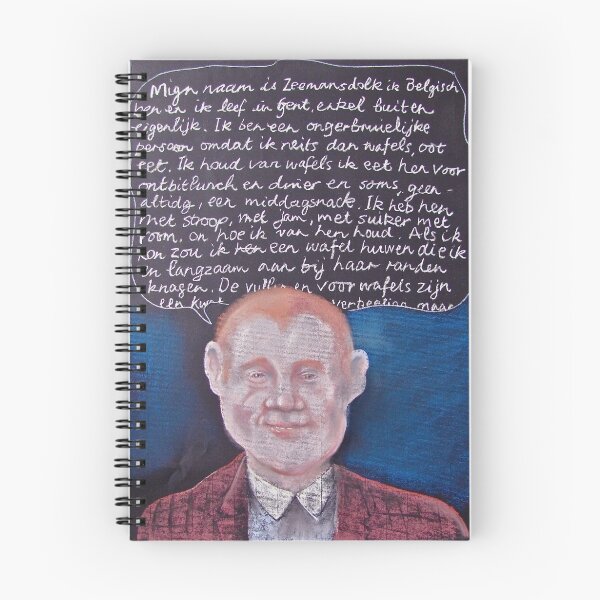 Mijn naam is Zeemansdolk ik Belgisch
ben en ik leef in Gent, enkel buiten
eigenlijk. Ik ben een ongerbruielijke
persoon omdat ik neits dan wafels, oot
eet. Ik houd van wafels ik eet hen voor
ontbitlunch en diner en soms, geen-
altidg, een middagsnack. Ik heb hen
met stroop, met jam, met suiker met
room. on hoe ik van hen houd. Als ik
kon zou ik hen een wafel huwen die ik
en langzaam aan bij haar randen
knagen. De vullingen voor wafels zijn
een verbeelding maar